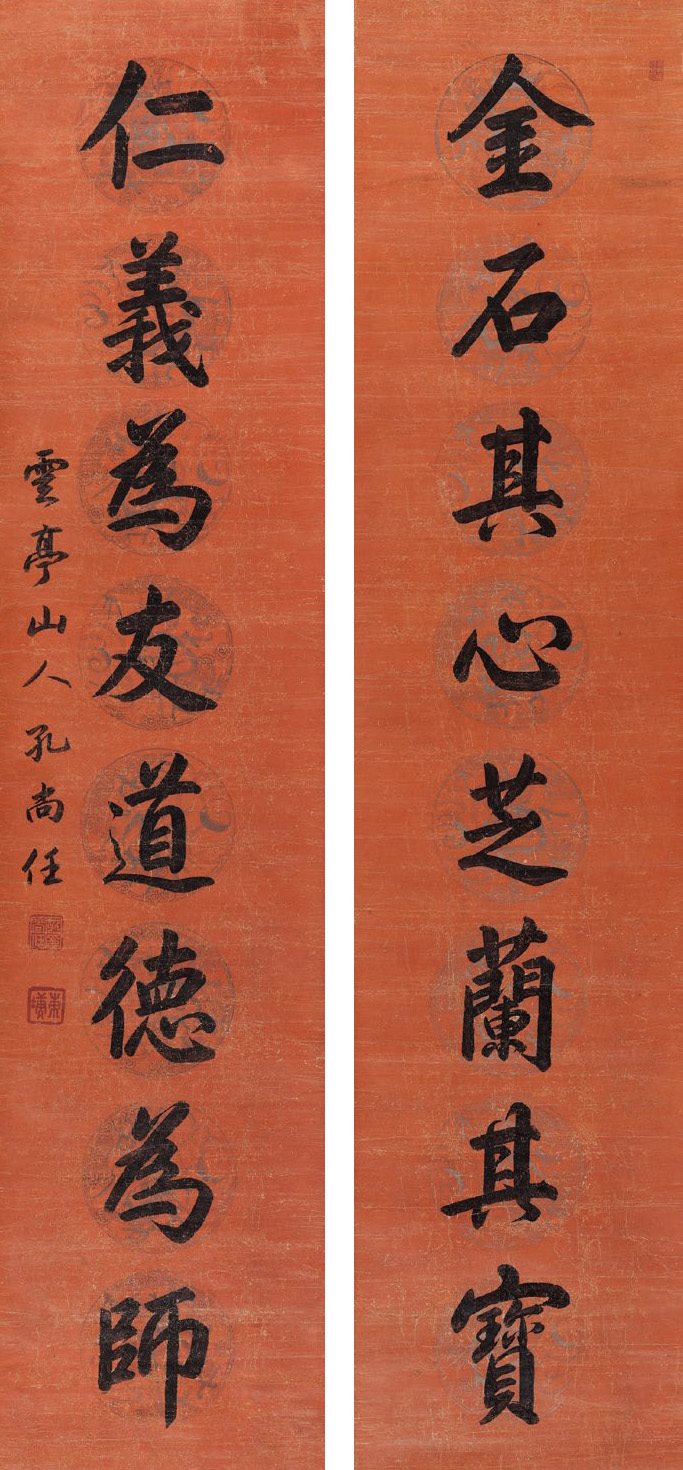 金石其心芝蘭其寶
仁義為友道德為師
雲亭山人孔尚任